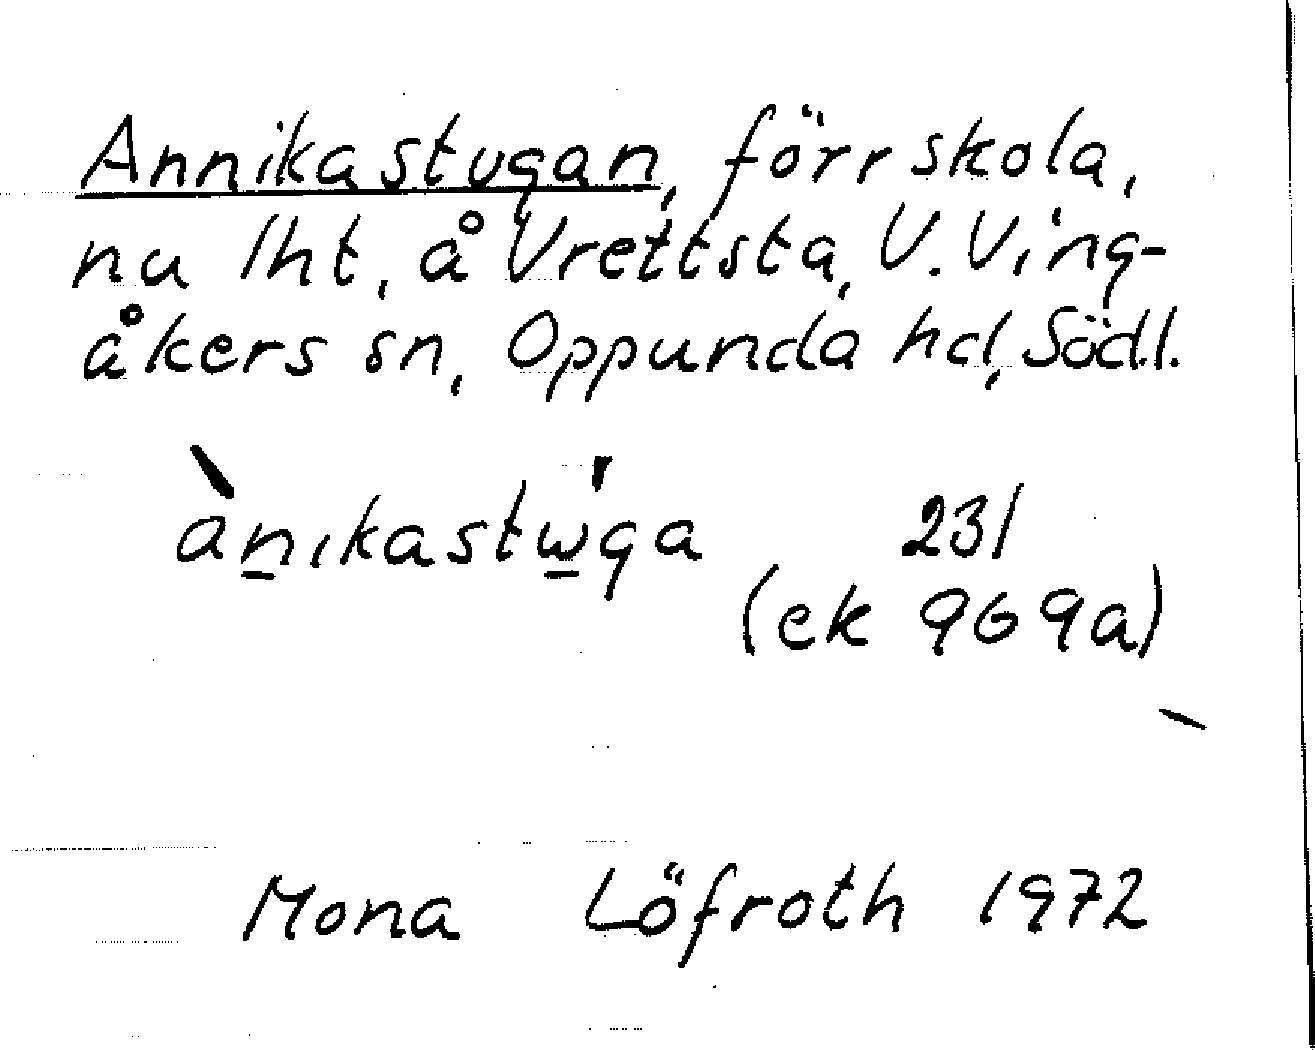 Annikastugan, förr skola,
nu lht, å Vrettsta, V. Ving-
åkers sn, Oppunda hd, Södl.
ànikastẁga 231
(ek 969a)
Mona Löfroth 1972